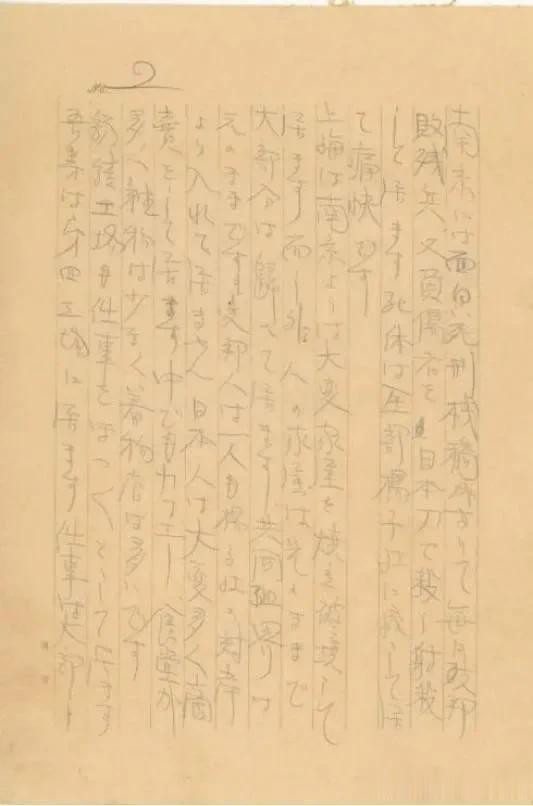 No 2
南京には面白死刑桟橋がありて毎日支那
敗残兵又負傷者を日本刀で殺し射殺
して居ます死体は全部楊子江に流して居
て痛快です
上海は南京よりは大変家屋を焼き破壊して
居ます而し外人の家屋は元のままで
大部分は歸って居ます共同租界は
元のままですが支那人は一人も楊子江の対岸
より入れて居ません日本人は大変多く商
賣をして居ます中でもカフエー、食堂が
多く雑物は少なく着物店は多いです
紡績工場も仕事をぼつ〱として居ます
は第四工場に居ます仕事は大部